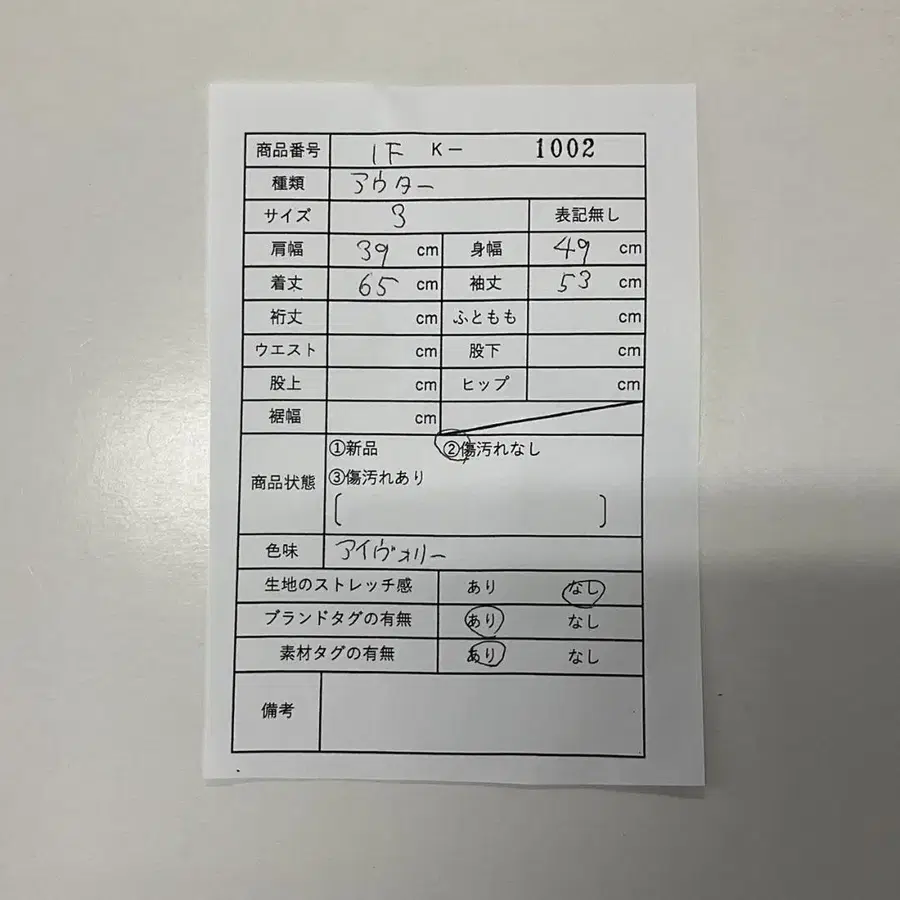 商品番号 1F K－ 1002
種類 アウター
サイズ 3 表記無し
肩幅 39 cm 身幅 49 cm
着丈 65 cm 袖丈 53 cm
裄丈 cm ふともも cm
ウエスト cm 股下 cm
股上 cm ヒップ cm
裾幅 cm
商品状態 ①新品 ②傷汚れなし
③傷汚れあり
[ ]
色味 アイヴォリー
生地のストレッチ感 あり なし
ブランドタグの有無 あり なし
素材タグの有無 あり なし
備考